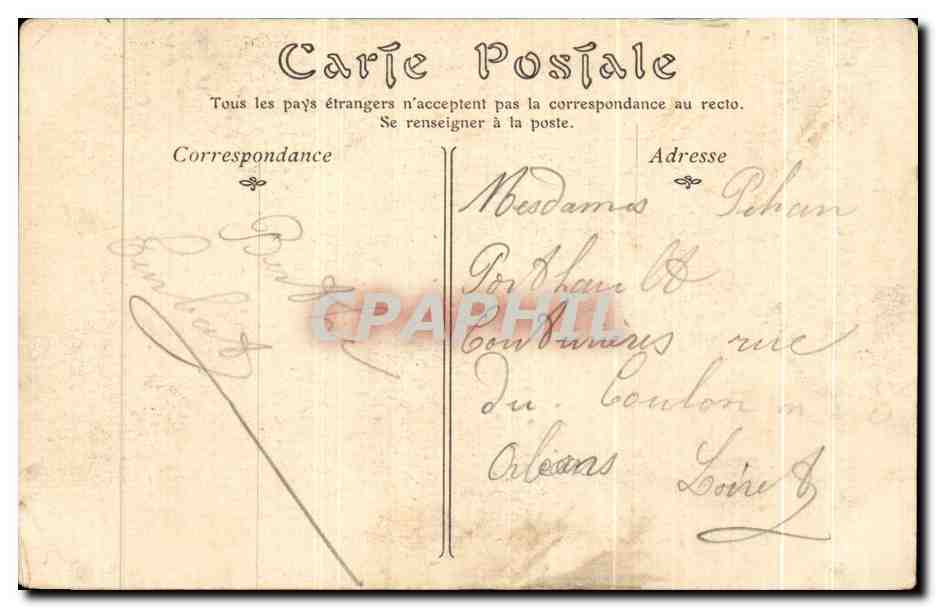 Carte Postale
Tous les pays étrangers n'acceptent pas la correspondance au recto.
Se renseigner à la poste.
Correspondance
Adresse
Mesdames Pihan
Porthault
Couturieres rue
du. Coulon
Orleans Loiret
CPAPHIL